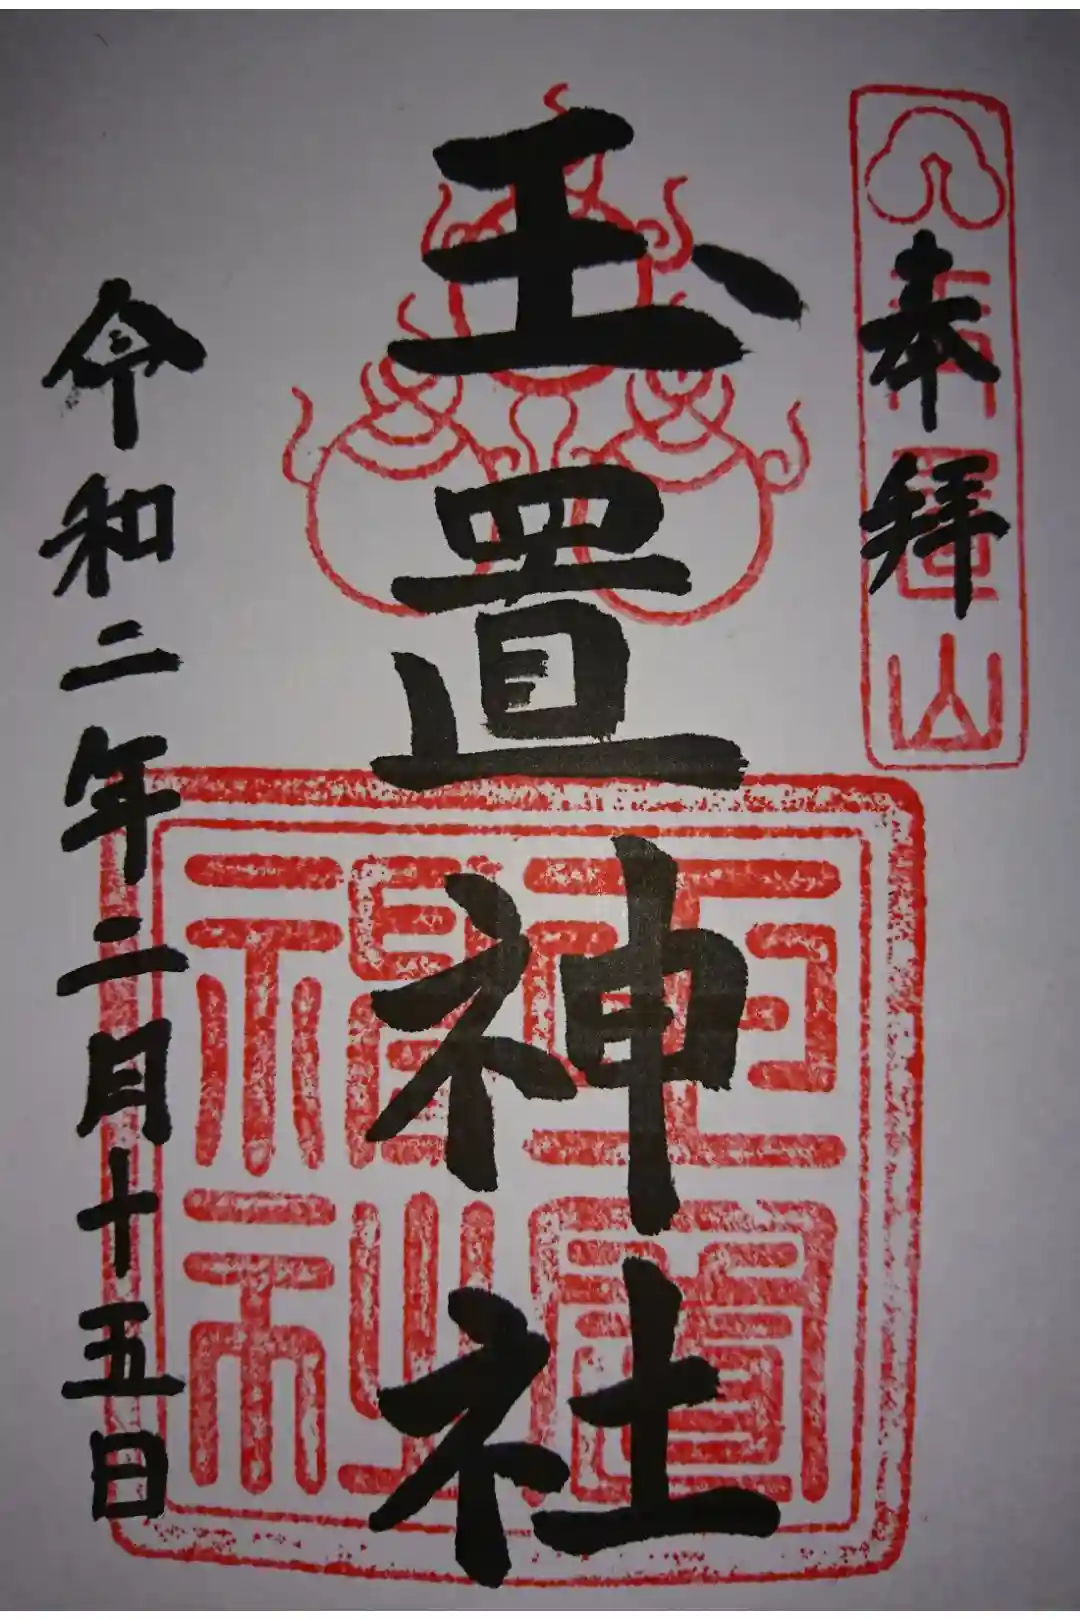 奉拝
玉置神社
令和二年二月十五日
玉置神社